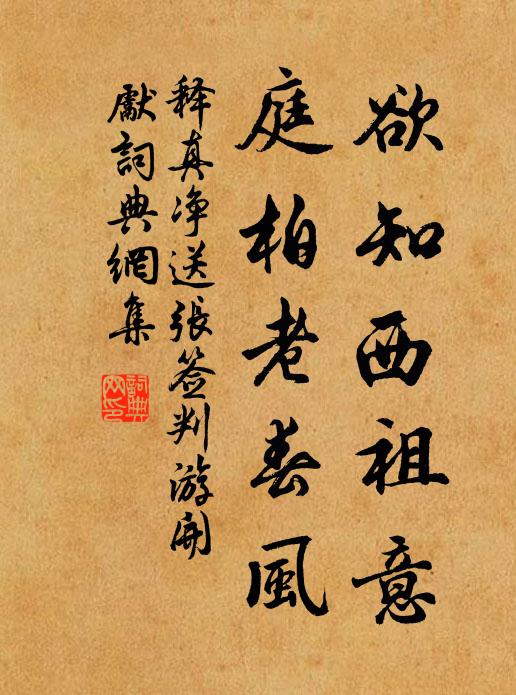 欲知西祖意
庭柏老春風
释真净送張签判游開
獻詞典網集
詞典网印